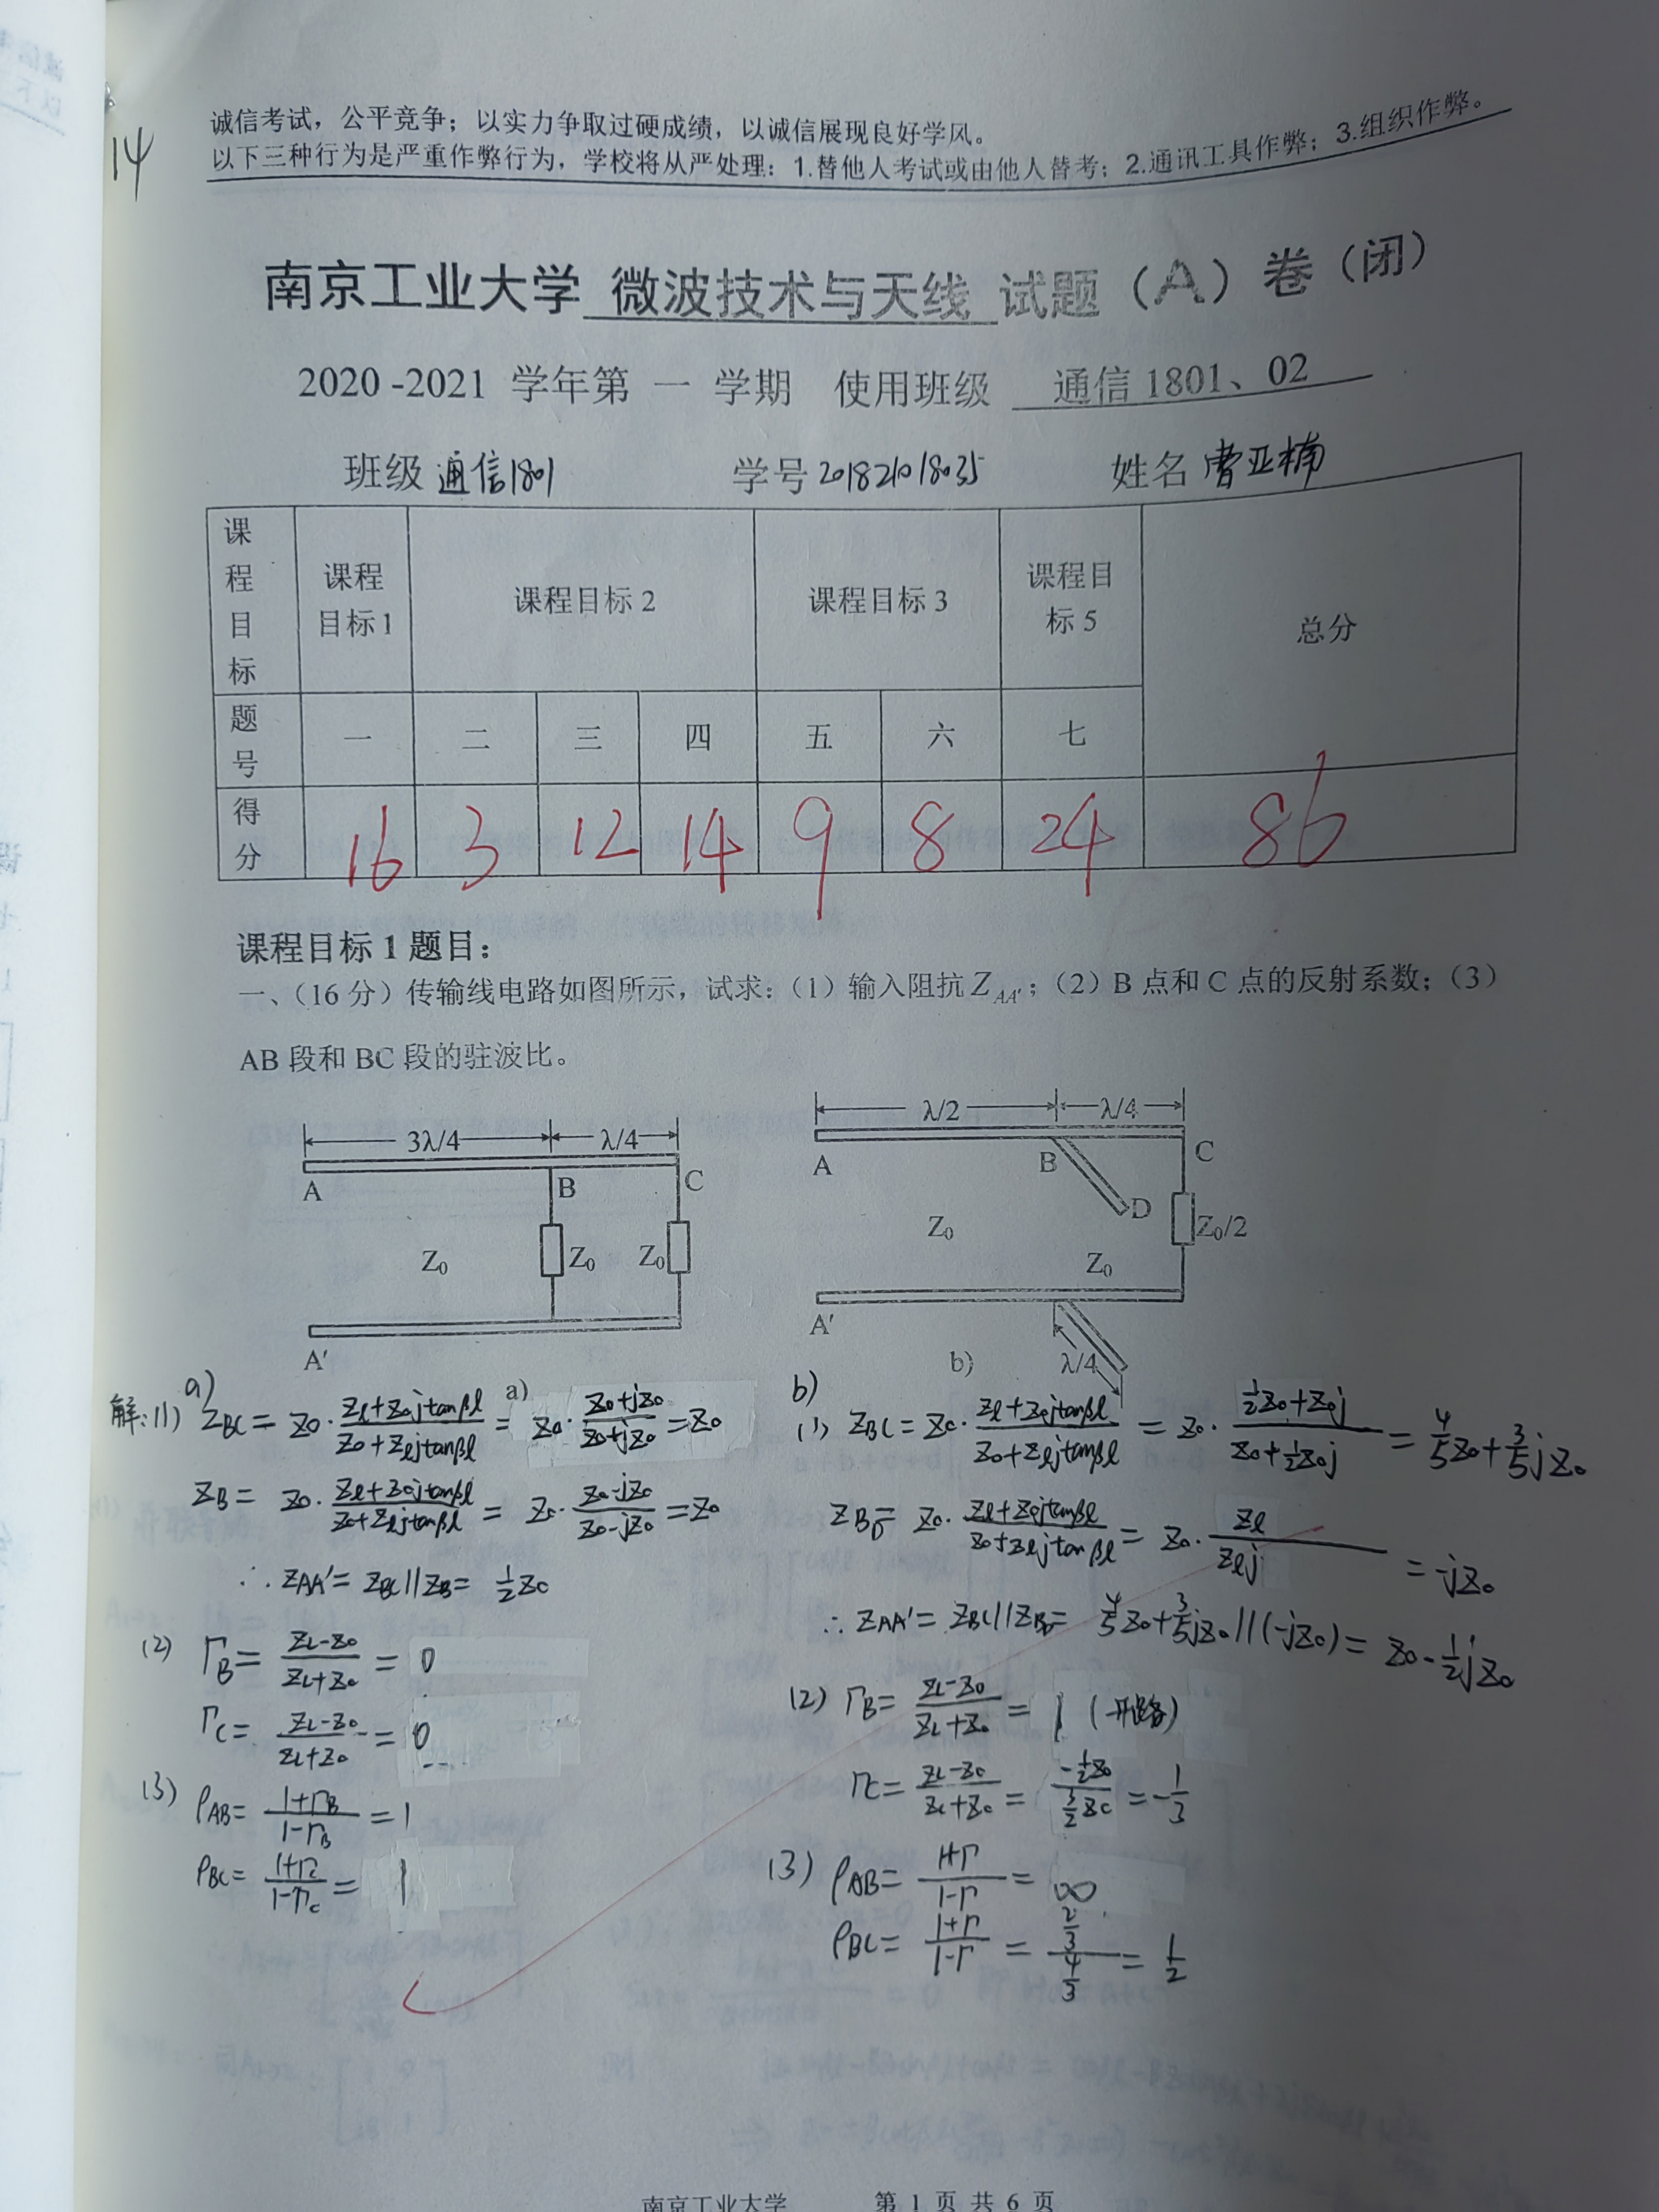 14
诚信考试，公平竞争；以实力争取过硬成绩，以诚信展现良好学风。
以下三种行为是严重作弊行为，学校将从严处理：1.替他人考试或由他人替考；2.通讯工具作弊；3.组织作弊。
南京工业大学 微波技术与天线 试题（A）卷（闭）
2020 -2021 学年第 一 学期 使用班级 通信 1801、02
班级 通信1801 学号 201821018035 姓名 曹亚楠
课程目标 课程目标 1 课程目标 2 课程目标 3 课程目标 5 总分
题号 一 二 三 四 五 六 七
得分 16 3 12 14 9 8 24 86
课程目标 1 题目：
一、（16 分）传输线电路如图所示，试求：（1）输入阻抗 Z_AA'；（2）B 点和 C 点的反射系数；（3）
AB 段和 BC 段的驻波比。
3λ/4 λ/4
A B C
Z₀ Z₀ Z₀
A'
a)
λ/2 λ/4
A B C
D
Z₀ Z₀/2
Z₀
A'
b) λ/4
解: a)
(1) Z_BC = Z₀·(Zl+Z₀jtanβl)/(Z₀+Zljtanβl) = Z₀·(Z₀+jZ₀)/(Z₀+jZ₀) = Z₀
Z_B = Z₀·(Zl+Z₀jtanβl)/(Z₀+Zljtanβl) = Z₀·(Z₀-jZ₀)/(Z₀-jZ₀) = Z₀
∴ Z_AA' = Z_BC//Z_B = ½Z₀
(2) Γ_B = (ZL-Z₀)/(ZL+Z₀) = 0
Γ_C = (ZL-Z₀)/(ZL+Z₀) = 0
(3) ρ_AB = (1+Γ_B)/(1-Γ_B) = 1
ρ_BC = (1+Γ_C)/(1-Γ_C) = 1
b)
(1) Z_BC = Z₀·(Zl+Z₀jtanβl)/(Z₀+Zljtanβl) = Z₀·(½Z₀+Z₀j)/(Z₀+½Z₀j) = 4/5Z₀+3/5jZ₀
Z_BD = Z₀·(Zl+Z₀jtanβl)/(Z₀+Zljtanβl) = Z₀·Zl/(Zlj) = -jZ₀
∴ Z_AA' = Z_BC//Z_BD = 4/5Z₀+3/5jZ₀//(-jZ₀) = Z₀-½jZ₀
(2) Γ_B = (ZL-Z₀)/(ZL+Z₀) = 1 (开路)
Γ_C = (ZL-Z₀)/(ZL+Z₀) = (-½Z₀)/(3/2Z₀) = -1/3
(3) ρ_AB = (1+Γ)/(1-Γ) = ∞
ρ_BC = (1+Γ)/(1-Γ) = (2/3)/(4/3) = 1/2
南京工业大学 第 1 页 共 6 页